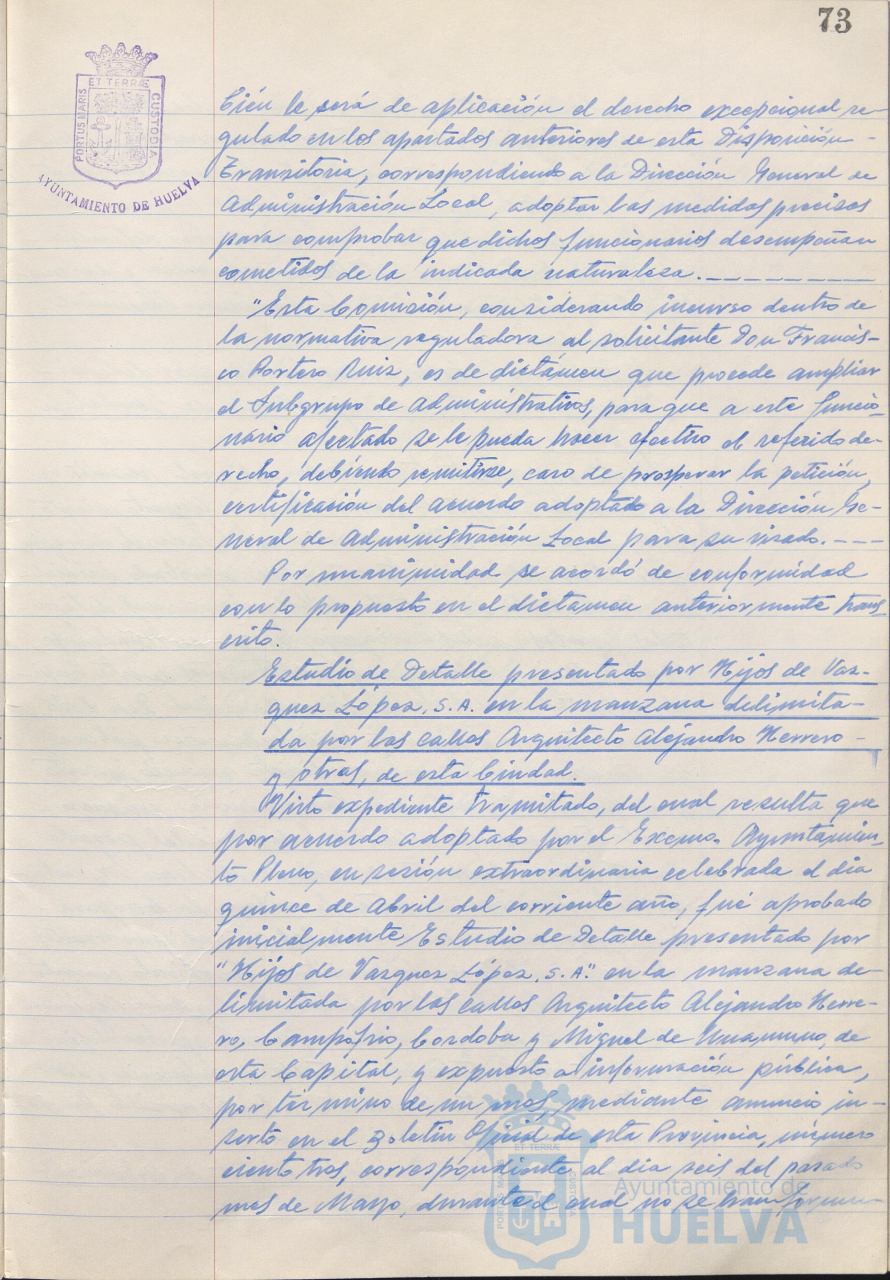 73
ET TERRÆ
PORTUS MARIS
CUSTODIA
AYUNTAMIENTO DE HUELVA
bién le será de aplicación el derecho excepcional re-
gulado en los apartados anteriores de esta Disposición-
Transitoria, correspondiendo a la Dirección General de
Administración Local, adoptar las medidas precisas
para comprobar que dichos funcionarios desempeñan
cometidos de la indicada naturaleza.---------
"Esta Comisión, considerando incurso dentro de
la normativa reguladora al solicitante Don Francis-
co Portero Ruiz, es de dictámen que procede ampliar
el Subgrupo de Administrativos, para que a este funcio-
nário afectado se le pueda hacer efectivo el referido de-
recho, debiendo remitirse, caso de prosperar la petición,
certificación del acuerdo adoptado a la Dirección Ge-
neral de Administración Local para su visado.---
Por unanimidad se acordó de conformidad
con lo propuesto en el dictamen anteriormente trans-
crito.
Estudio de Detalle presentado por Hijos de Vaz-
quez López, S.A. en la manzana delimita-
da por las calles Arquitecto Alejandro Herrero-
y otras, de esta Ciudad.
Visto expediente tramitado, del cual resulta que
por acuerdo adoptado por el Excmo. Ayuntamien-
to Pleno, en sesión extraordinaria celebrada el dia
quince de Abril del corriente año, fué aprobado
inicialmente Estudio de Detalle presentado por
"Hijos de Vazquez López, S.A." en la manzana de-
limitada por las calles Arquitecto Alejandro Herre-
ro, Campofrio, Cordoba y Miguel de Unamuno, de
esta Capital, y expuesto a información pública,
por término de un mes, mediante anuncio in-
serto en el Boletin Oficial de esta Provincia, número
ciento tres, correspondiente al dia seis del pasado
mes de Mayo, durante el cual no se han formu-
ET TERRÆ
PORTUS MARIS
CUSTODIA
Ayuntamiento de
HUELVA